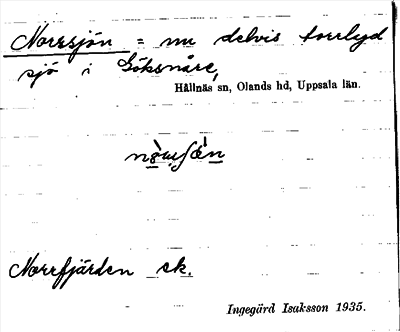 Norrsjön = nu delvis torrlyd
sjö i Göksnåre,
Hållnäs sn, Olands hd, Uppsala län.
Norrfjärden ek.
Ingegärd Isaksson 1935.